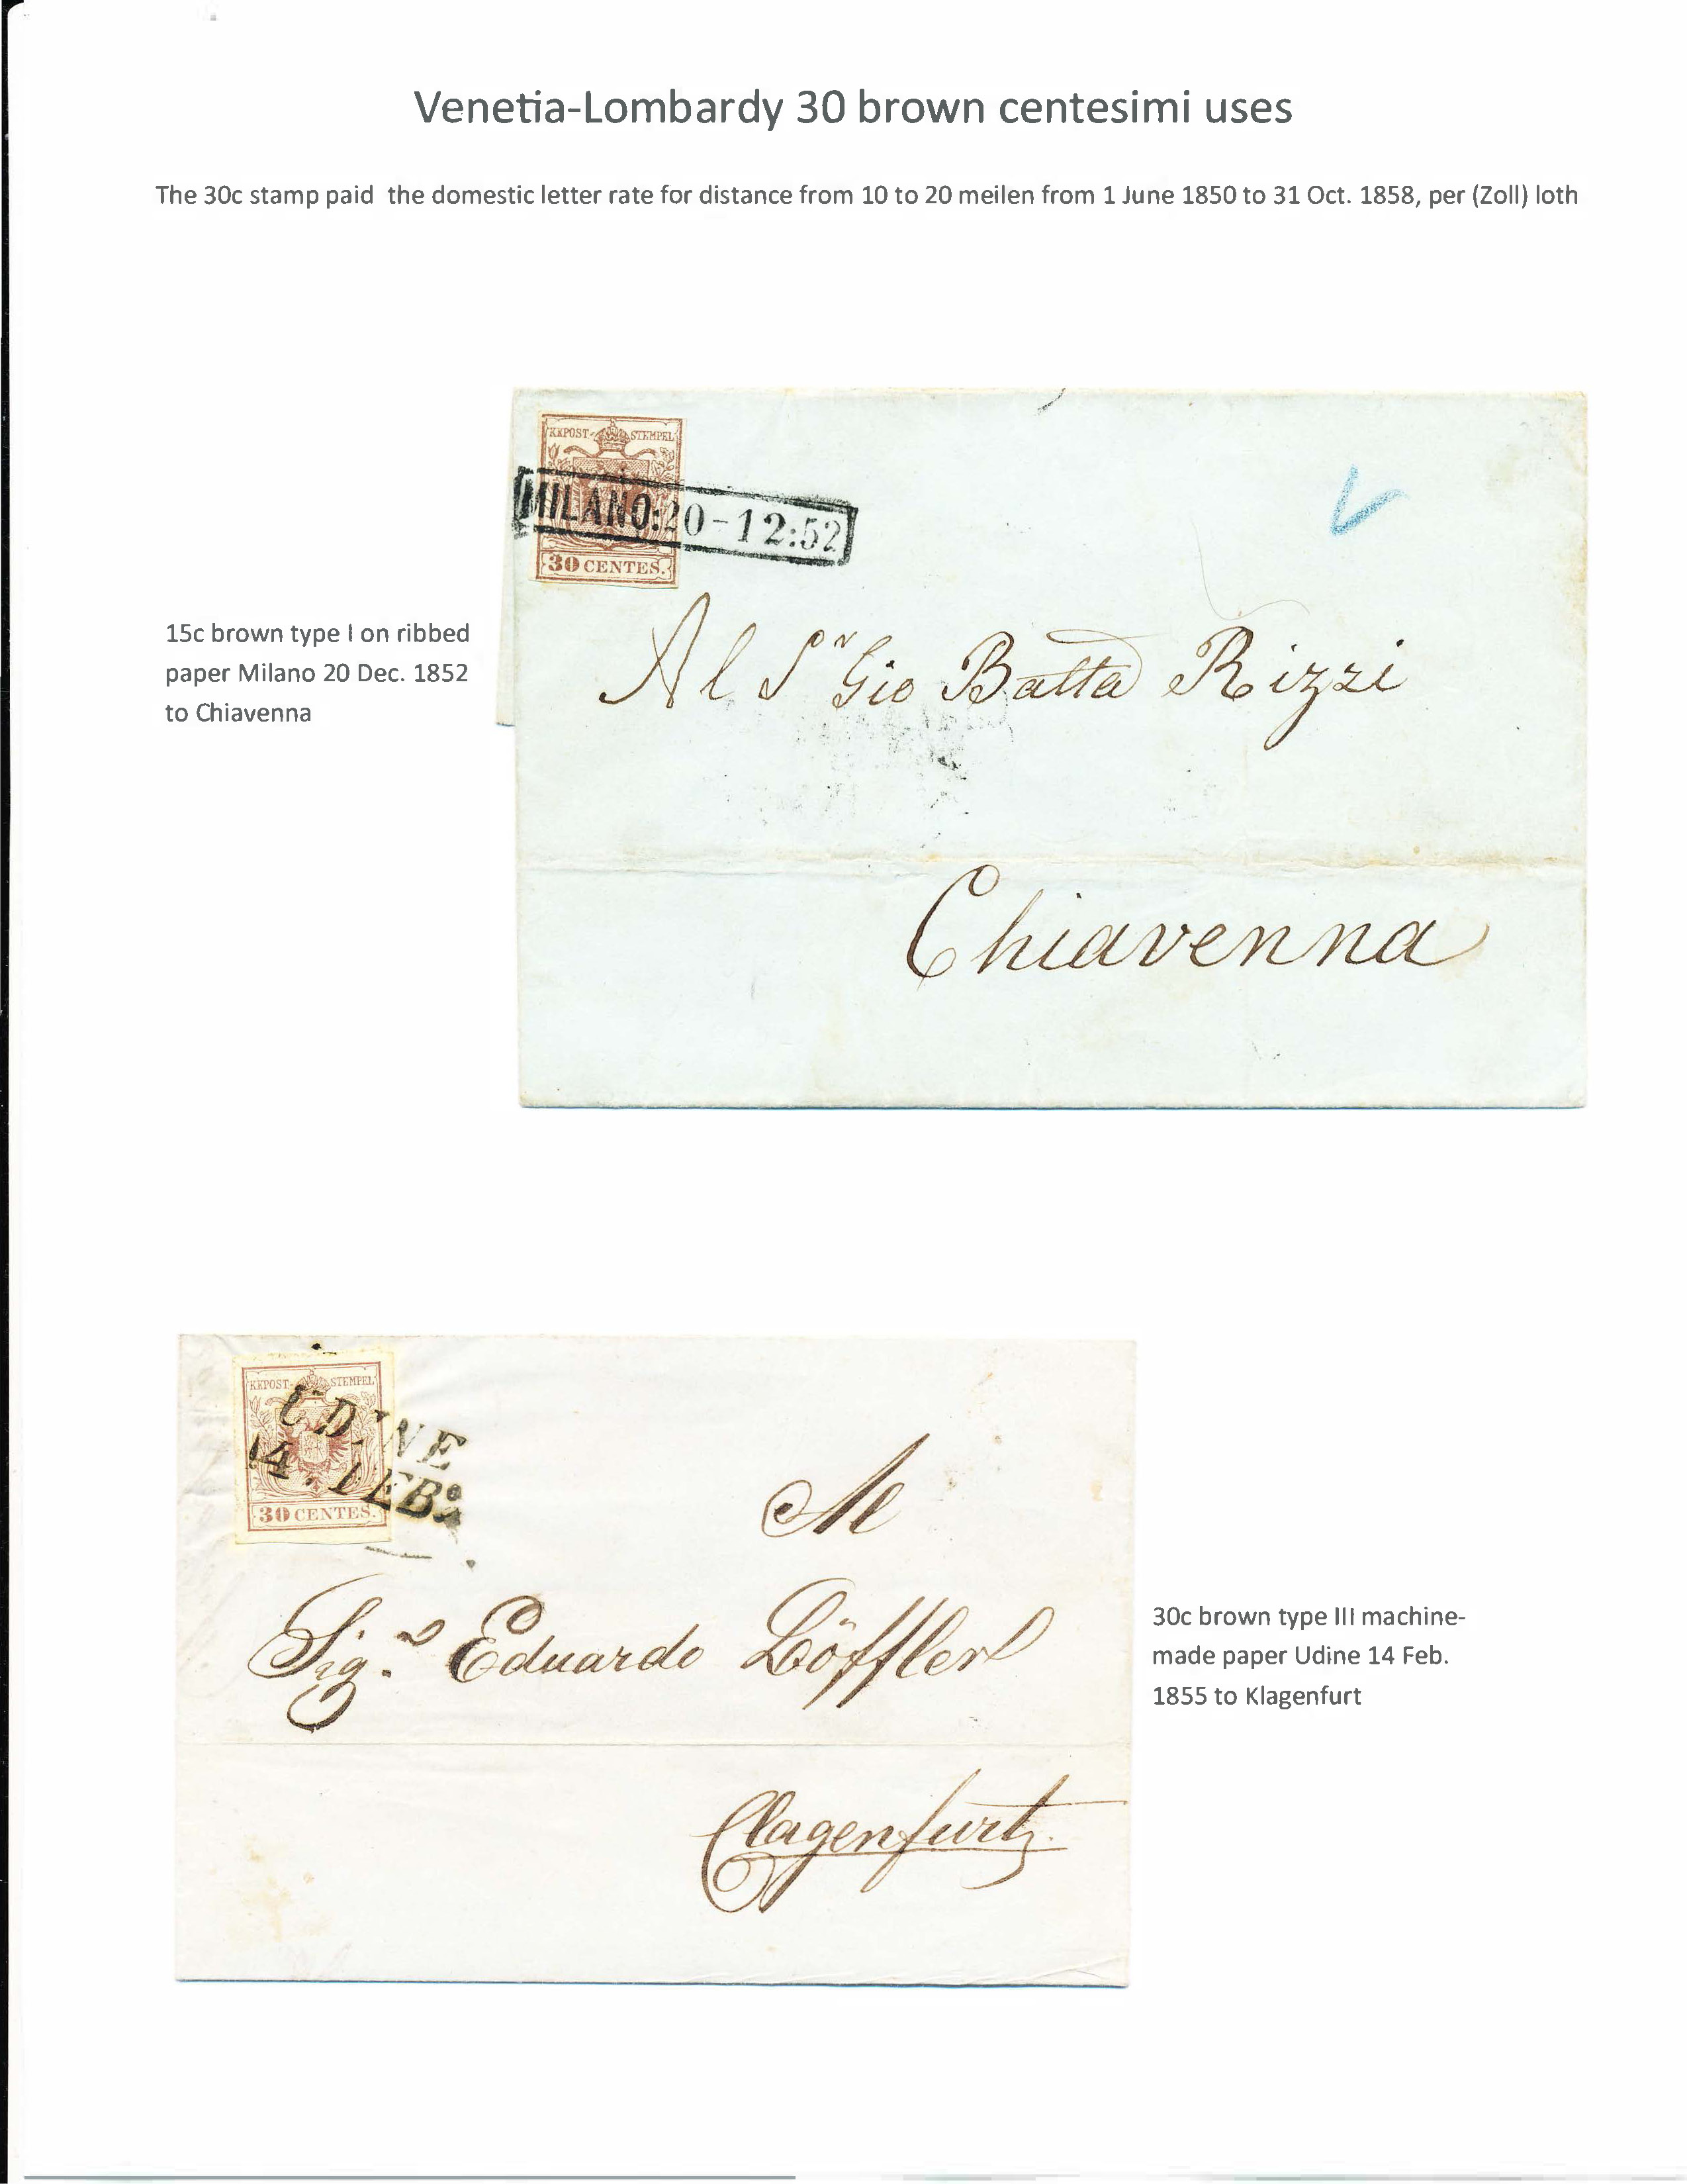 Venetia-Lombardy 30 brown centesimi uses
The 30c stamp paid the domestic letter rate for distance from 10 to 20 meilen from 1 June 1850 to 31 Oct. 1858, per (Zoll) loth
KKPOST- STEMPEL
MILANO:20-12:52
30 CENTES.
15c brown type I on ribbed
paper Milano 20 Dec. 1852
to Chiavenna
Al Sr Gio Batta Rizzi
Chiavenna
KKPOST- STEMPEL
UDINE
14. FEBo
30 CENTES.
Al
Sigr Eduardo Löffler
Clagenfurt
30c brown type III machine-
made paper Udine 14 Feb.
1855 to Klagenfurt